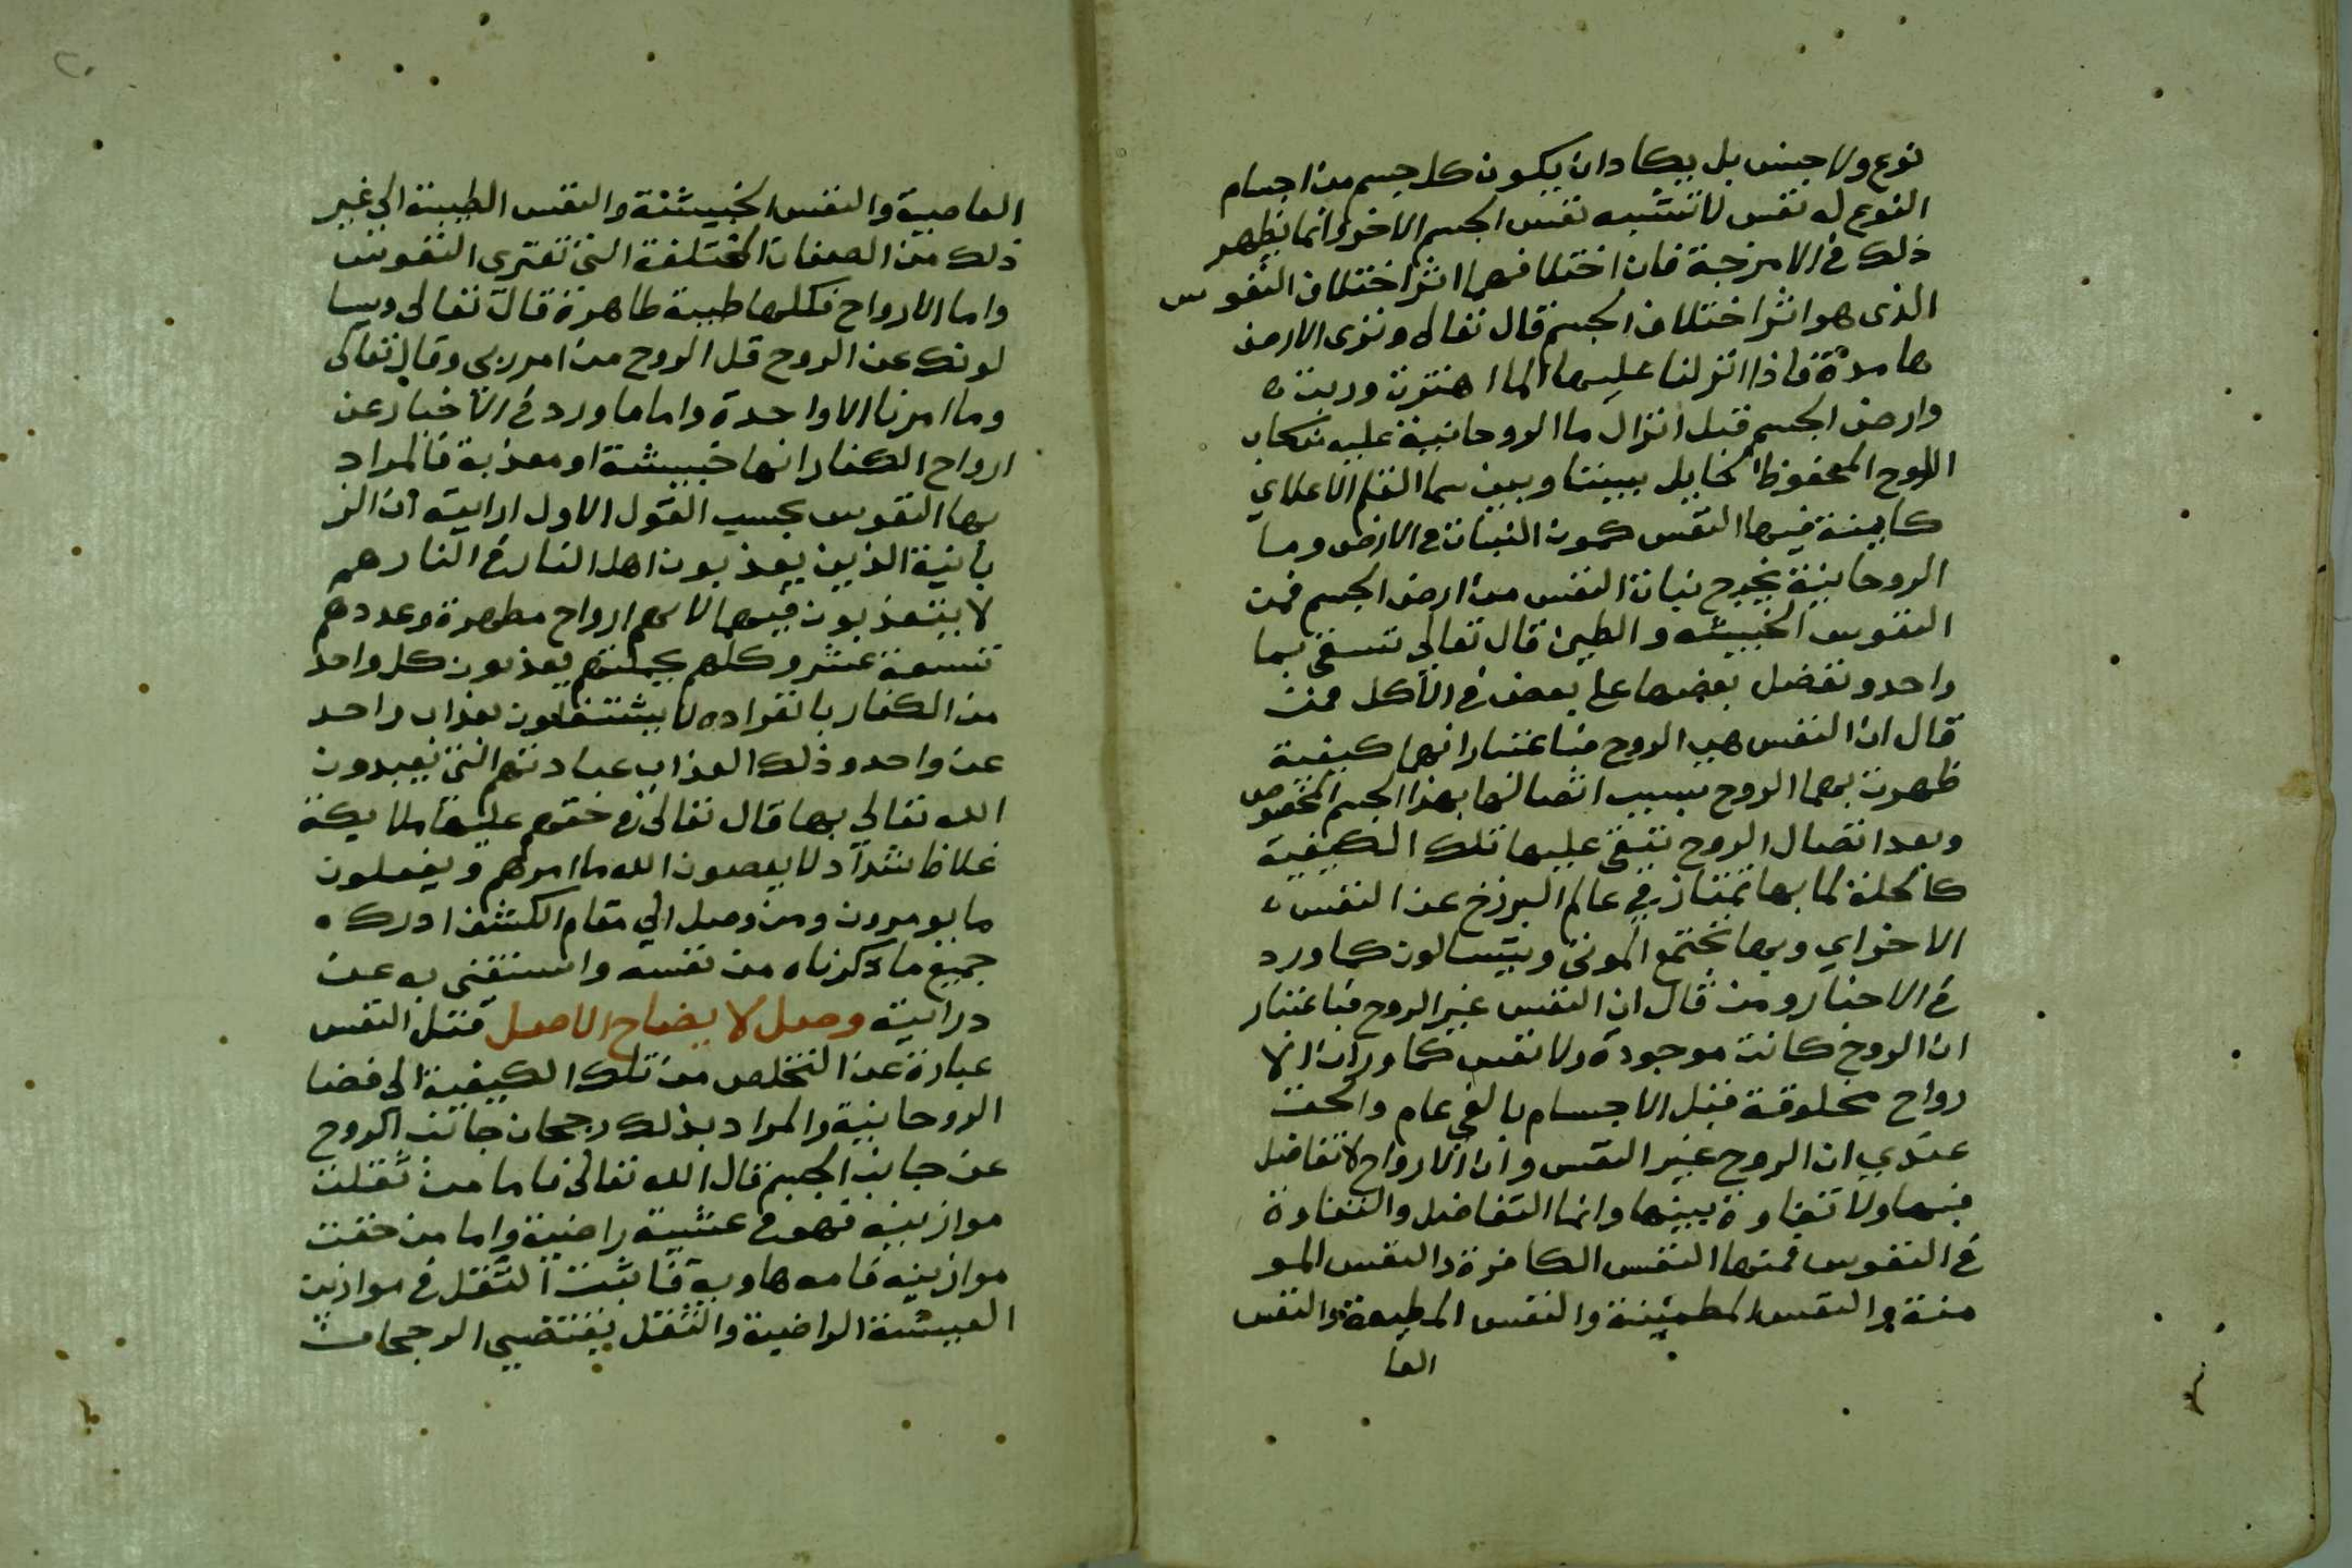 نوع ولا جنس بل يكاد ان يكون كل جسم من اجسام
النوع له نفس لا تشبه نفس الجسم الاخر وانما يظهر
ذلك في الامزجة فان اختلافها اثر اختلاف النفوس
الذى هو اثر اختلاف الجسم قال تعالى وترى الارض
هامدة فاذا انزلنا عليها الما اهتزت وربت
وارض الجسم قبل انزال ما الروحانية عليه
اللوح المحفوظ الحايل بيننا وبين سما القلم الاعلاي
كاينة فيها النفس كمون النبات في الارض وما
الروحانية يخرج نبات النفس من ارض الجسم فمن
النفوس الخبيثه والطيب قال تعالى تسقى بما
واحد ونفضل بعضها على بعض في الاكل فمن
قال ان النفس هي الروح فباعتبار انها كيفية
ظهرت بها الروح بسبب اتصالها بهذا الجسم المخصوص
وبعد اتصال الروح تبقى عليها تلك الكيفية
كالحلة لها بها تمتاز في عالم البرزخ عن النفس
الاخراي وبها تجتمع الموتى ويتسالون كما ورد
في الاخبار ومن قال ان النفس غير الروح فباعتبار
ان الروح كانت موجودة ولا نفس كما ورد ان الا
رواح مخلوقة قبل الاجسام بالفي عام والحق
عندي ان الروح غير النفس وان الارواح لا تفاضل
فيها ولا تفاوة بينها وانما التفاضل والتفاوة
في النفوس فمنها النفس الكافرة والنفس المو
منة والنفس المطمئنة والنفس المطيعة والنفس
العا
العاصية والنفس الخبيثة والنفس الطيبة الى غير
ذلك من الصفات المختلفة التي تعتري النفوس
واما الارواح فكلها طيبة طاهرة قال تعالى ويسا
لونك عن الروح قل الروح من امر ربي وقال تعالى
وما امرنا الا واحدة واما ما ورد في الاخبار عن
ارواح الكفار انها خبيثة او معذبة فالمراد
بها النفوس بحسب القول الاول ارايت ان الز
بانية الذين يعذبون اهل النار في النار هم
لا يتعذبون فيها لانهم ارواح مطهرة وعددهم
تسعة عشر وكلهم بجملتهم يعذبون كل واحد
من الكفار بانفراده لا يشتغلون بعذاب واحد
عن واحد وذلك العذاب عبادتهم التي يعبدون
الله تعالى بها قال تعالى في حقهم عليها ملايكة
غلاظ شداد لا يعصون الله ما امرهم ويفعلون
ما يومرون ومن وصل الى مقام الكشف ادرك
جميع ما ذكرناه من نفسه واستغنى به عن
درايته وصل لا يضاح الاصل قتل النفس
عبارة عن التخلص من تلك الكيفية الى فضا
الروحانية والمراد بذلك رجحان جانب الروح
عن جانب الجسم قال الله تعالى فاما من ثقلت
موازينه فهو في عيشة راضية واما من خفت
موازينه فامه هاوية فاثبت الثقل في موازين
العيشة الراضية والثقل يقتضي الرجحان